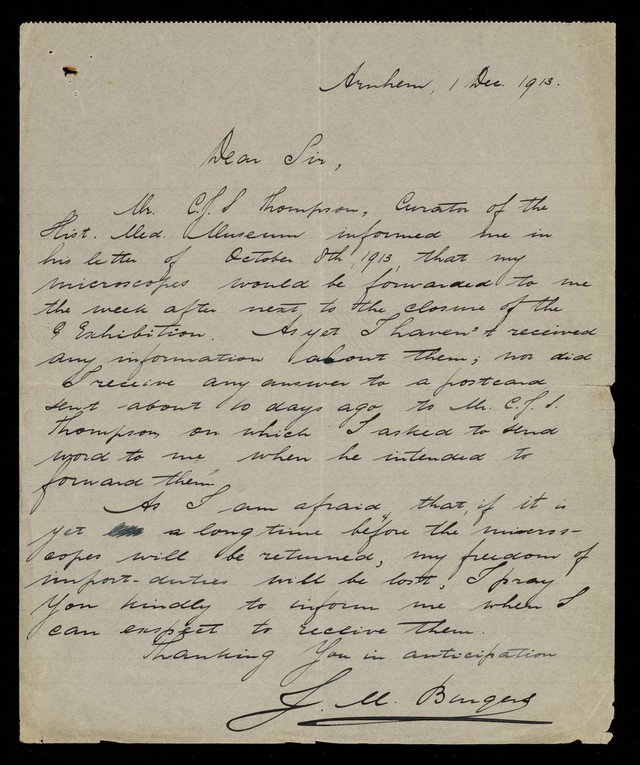 Arnhem, 1 Dec. 1913.
Dear Sir,
Mr. C.J.S Thompson, Curator of the
Hist. Med. Museum informed me in
his letter of October 8th, 1913, that my
microscopes would be forwarded to me
the week after next to the closure of the
Exhibition. As yet I haven't received
any information about them; nor did
I receive any answer to a postcard
sent about 10 days ago to Mr. C.J.S.
Thompson on which I asked to send
word to me when he intended to
forward them.
As I am afraid, that, if it is
yet a long time before the micros-
copes will be returned, my freedom of
import-duties will be lost, I pray
You kindly to inform me when I
can exspect to receive them.
Thanking You in anticipation
J. M. Burgers